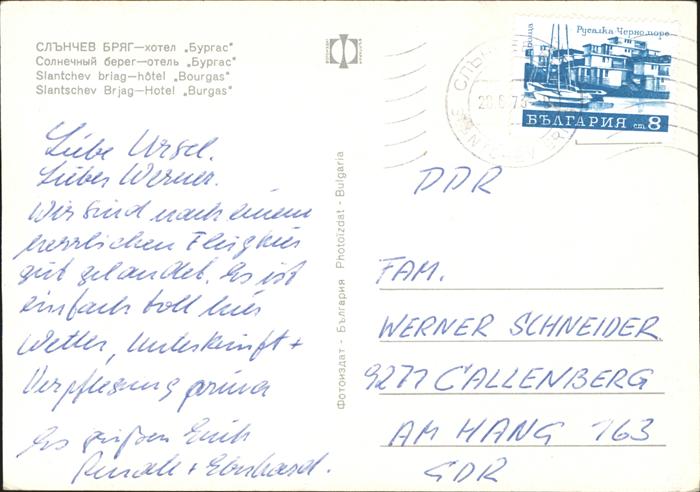 СЛЪНЧЕВ БРЯГ—хотел „Бургас"
Солнечный берег—отель „Бургас"
Slantchev briag—hôtel „Bourgas"
Slantschev Brjag—Hotel „Burgas"
Liebe Ursel.
Lieber Werner.
Wir sind nach einem
herrlichen Flug hier
gut gelandet. Es ist
einfach toll hier
Wetter, Unterkunft +
Verpflegung prima
Es grüßen Euch
Renate + Eberhard.
Фотоиздат - България Photoizdat - Bulgaria
Русалка-Черноморе
БЪЛГАРИЯ ст 8
DDR
FAM.
WERNER SCHNEIDER
9271 CALLENBERG
AM HANG 163
GDR